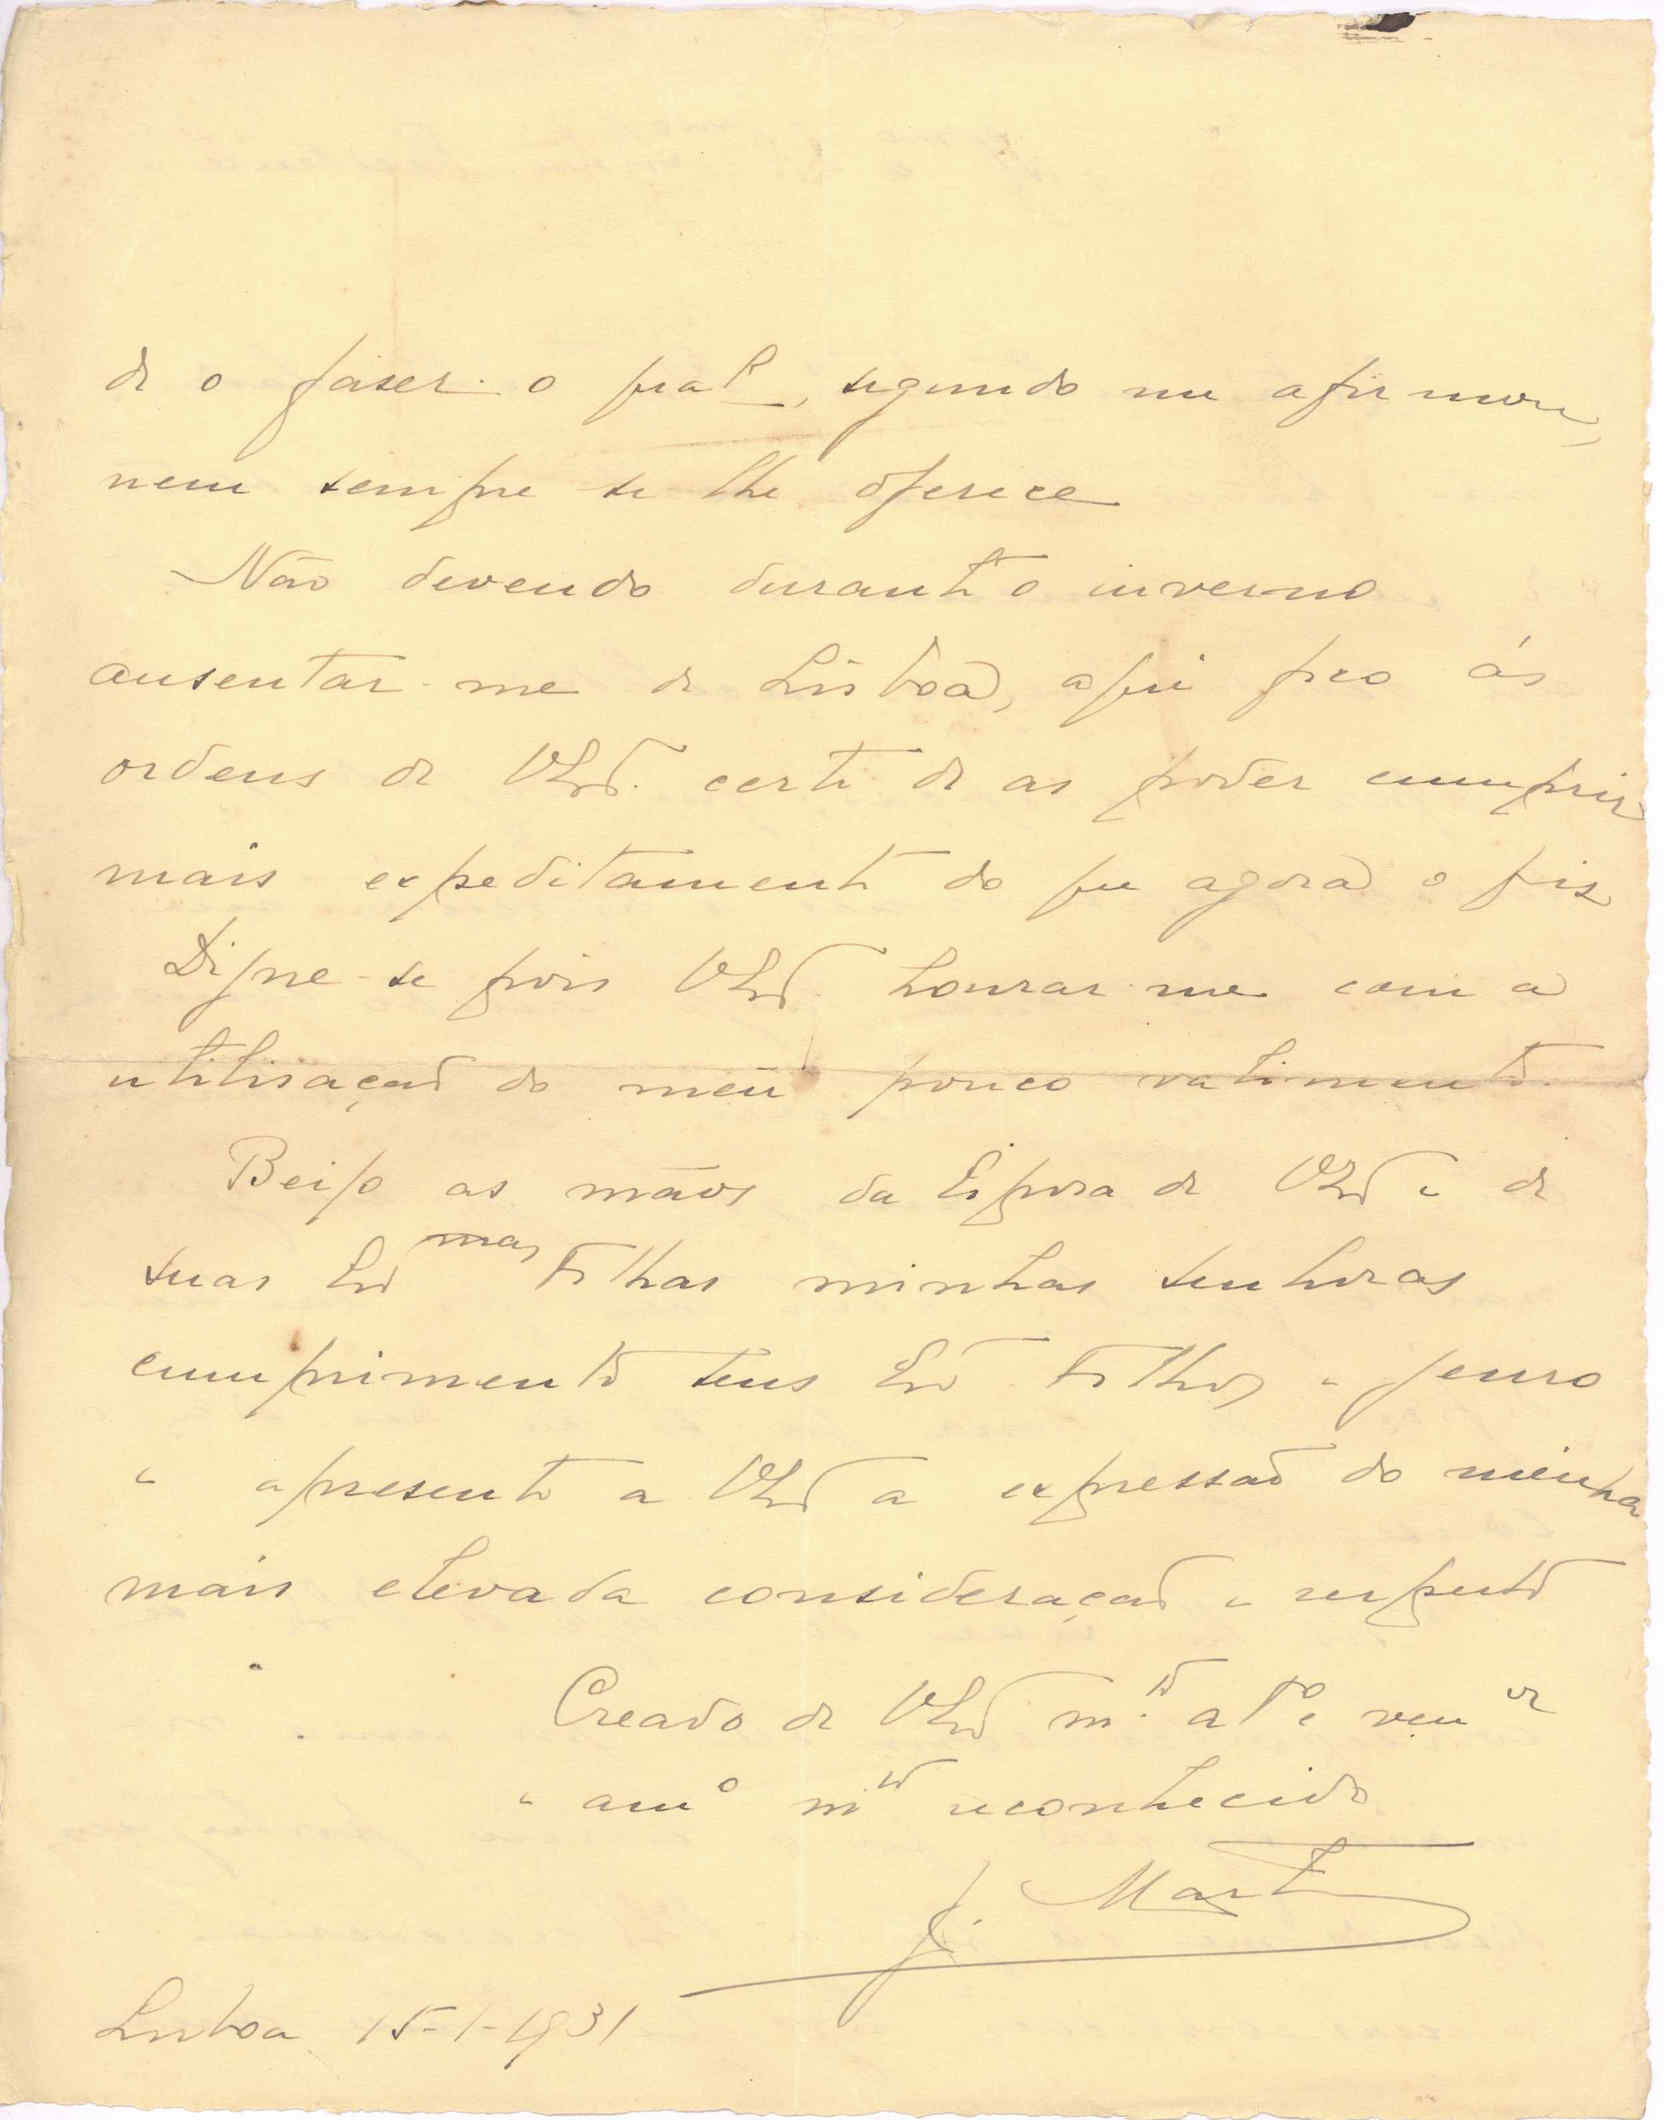 de o faser. o qual, segundo me afirmou,
nem sempre se lhe oferece
Não devendo durante o inverno
ausentar-me de Lisboa, aqui fico ás
ordens de VExª. certo de as poder cumprir
mais expeditamente do que agora o fiz
Digne-se pois VExª. honrar-me com a
utilisação do meu pouco valimento.
Beijo as mãos da Esposa de VExª e de
suas Exmas Filhas minhas senhoras
cumprimento seus Exmos Filhos e genro
e apresento a VExª a expressão do minha
mais elevada consideração e respeito
Creado de VExª mto. atº e venor
e amº mto reconhecido
J. Mart
Lisboa 15-1-1931